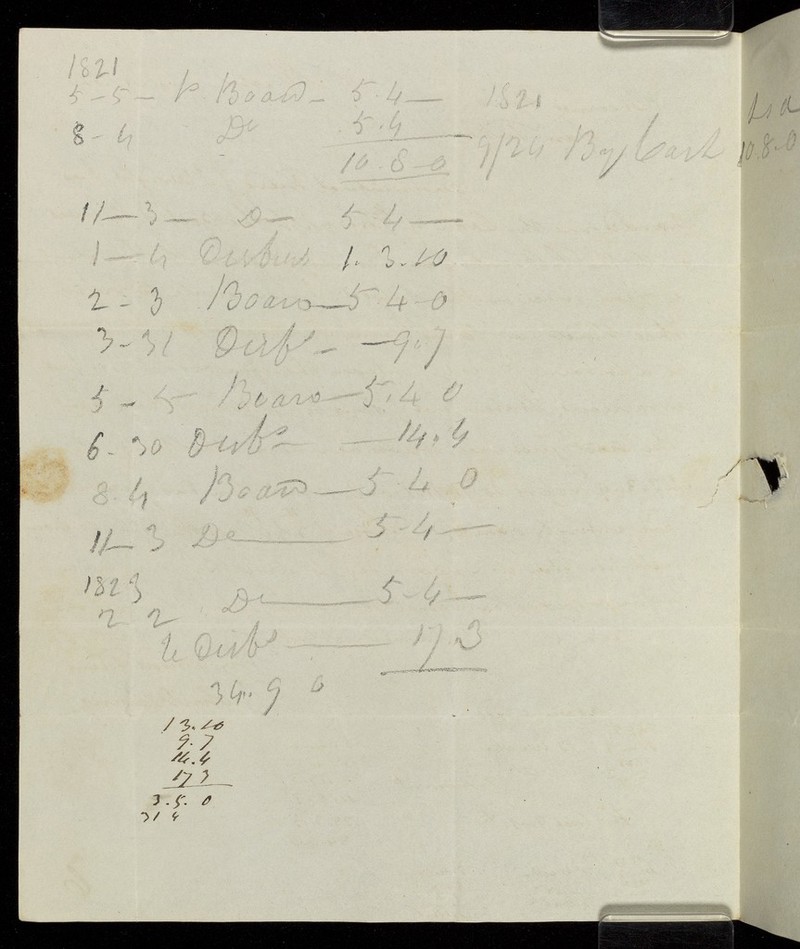 1821
5-5- Board- 5.4- 1821
8-4 Do 5.4
10-8-0 9/24 By Cash 10.8.0
11-3- Do- 5-4-
1-4 Disburs 1.3.10
2-3 Board-5.4-0
3-31 Disbs- -9.7
5-5 Board-5.4 0
6-30 Disbs- -14.4
8.4 Board-5 4 0
11-3 Do- 5-4-
1823
2 2 Do-5-4-
Disbs- 17.3
34.9 0
1 3.10
9.7
14.4
17 3
3.5. 0
31 4